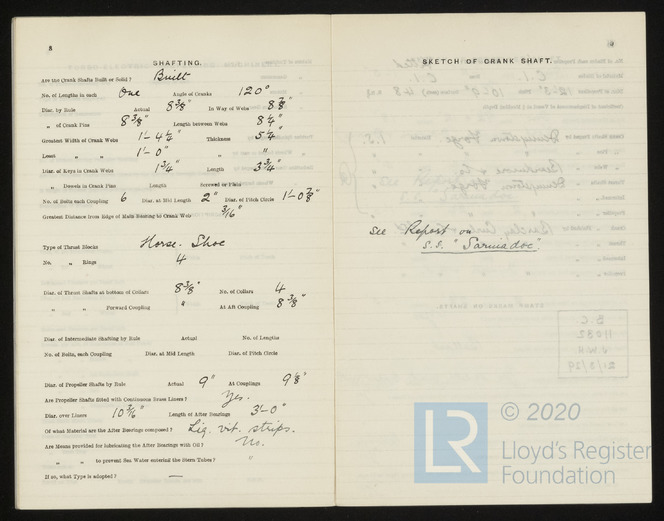 8
SHAFTING.
Are the Crank Shafts Built or Solid? Built
No. of Lengths in each One Angle of Cranks 120°
Diar. by Rule Actual 8 3/8" In Way of Webs 8 7/8"
„ of Crank Pins 8 3/8" Length between Webs 8 1/4"
Greatest Width of Crank Webs 1'- 4 1/4" Thickness 5 1/4"
Least „ „ 1'- 0" „ "
Diar. of Keys in Crank Webs 1 3/4" Length 3 3/4"
„ Dowels in Crank Pins Length Screwed or Plain
No. of Bolts each Coupling 6 Diar. at Mid Length 2" Diar. of Pitch Circle 1'-0 7/8"
Greatest Distance from Edge of Main Bearing to Crank Web 3/16"
Type of Thrust Blocks Horse-Shoe
No. „ Rings 4
Diar. of Thrust Shafts at bottom of Collars 8 3/8" No. of Collars 4
„ „ Forward Coupling " At Aft Coupling 8 3/8"
Diar. of Intermediate Shafting by Rule Actual No. of Lengths
No. of Bolts, each Coupling Diar. at Mid Length Diar. of Pitch Circle
Diar. of Propeller Shafts by Rule Actual 9" At Couplings 9 1/8"
Are Propeller Shafts fitted with Continuous Brass Liners? Yes.
Diar. over Liners 10 3/16" Length of After Bearings 3'-0"
Of what Material are the After Bearings composed? Lig. vit. strips.
Are Means provided for lubricating the After Bearings with Oil? No.
„ „ to prevent Sea Water entering the Stern Tubes? "
If so, what Type is adopted? —
SKETCH OF CRANK SHAFT.
See Report on
S.S. "Sarmadoc".
© 2020
LR Lloyd's Register
Foundation